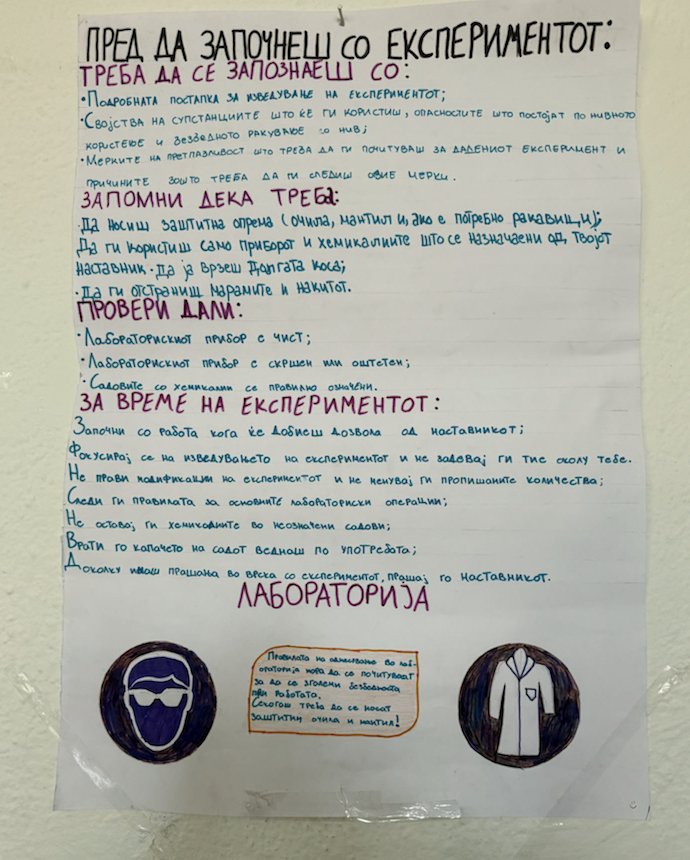 ПРЕД ДА ЗАПОЧНЕШ СО ЕКСПЕРИМЕНТОТ:
ТРЕБА ДА СЕ ЗАПОЗНАЕШ СО:
•Подробната постапка за изведување на експериментот;
•Својства на супстанциите што ќе ги користиш, опасностите што постојат по нивното
користење и безбедното ракување со нив;
•Мерките на претпазливост што треба да ги почитуваш за дадениот експеримент и
причините зошто треба да ги следиш овие мерки.
ЗАПОМНИ ДЕКА ТРЕБА:
•Да носиш заштитна опрема (очила, мантил и, ако е потребно ракавици);
Да ги користиш само приборот и хемикалиите што се назначаени од твојот
наставник •Да ја врзеш долгата коса;
•Да ги отстраниш марамите и накитот.
ПРОВЕРИ ДАЛИ:
•Лабораторискиот прибор е чист;
•Лабораторискиот прибор е скршен или оштетен;
•Садовите со хемикалии се правилно означени.
ЗА ВРЕМЕ НА ЕКСПЕРИМЕНТОТ:
Започни со работа кога ќе добиеш дозвола од наставникот;
Фокусирај се на изведувањето на експериментот и не задевај ги тие околу тебе.
Не прави модификации на експериментот и не менувај ги пропишаните количества;
Следи ги правилата за основните лабораториски операции;
Не оставај ги хемикалиите во неозначени садови;
Врати го капачето на садот веднаш по употребата;
Доколку имаш прашања во врска со експериментот, прашај го наставникот.
ЛАБОРАТОРИЈА
Правилата на однесување во лаб-
ораторија мора да се почитуваат
за да се зголеми безбедноста
при работата.
Секогаш треба да се носат
заштитни очила и мантил!